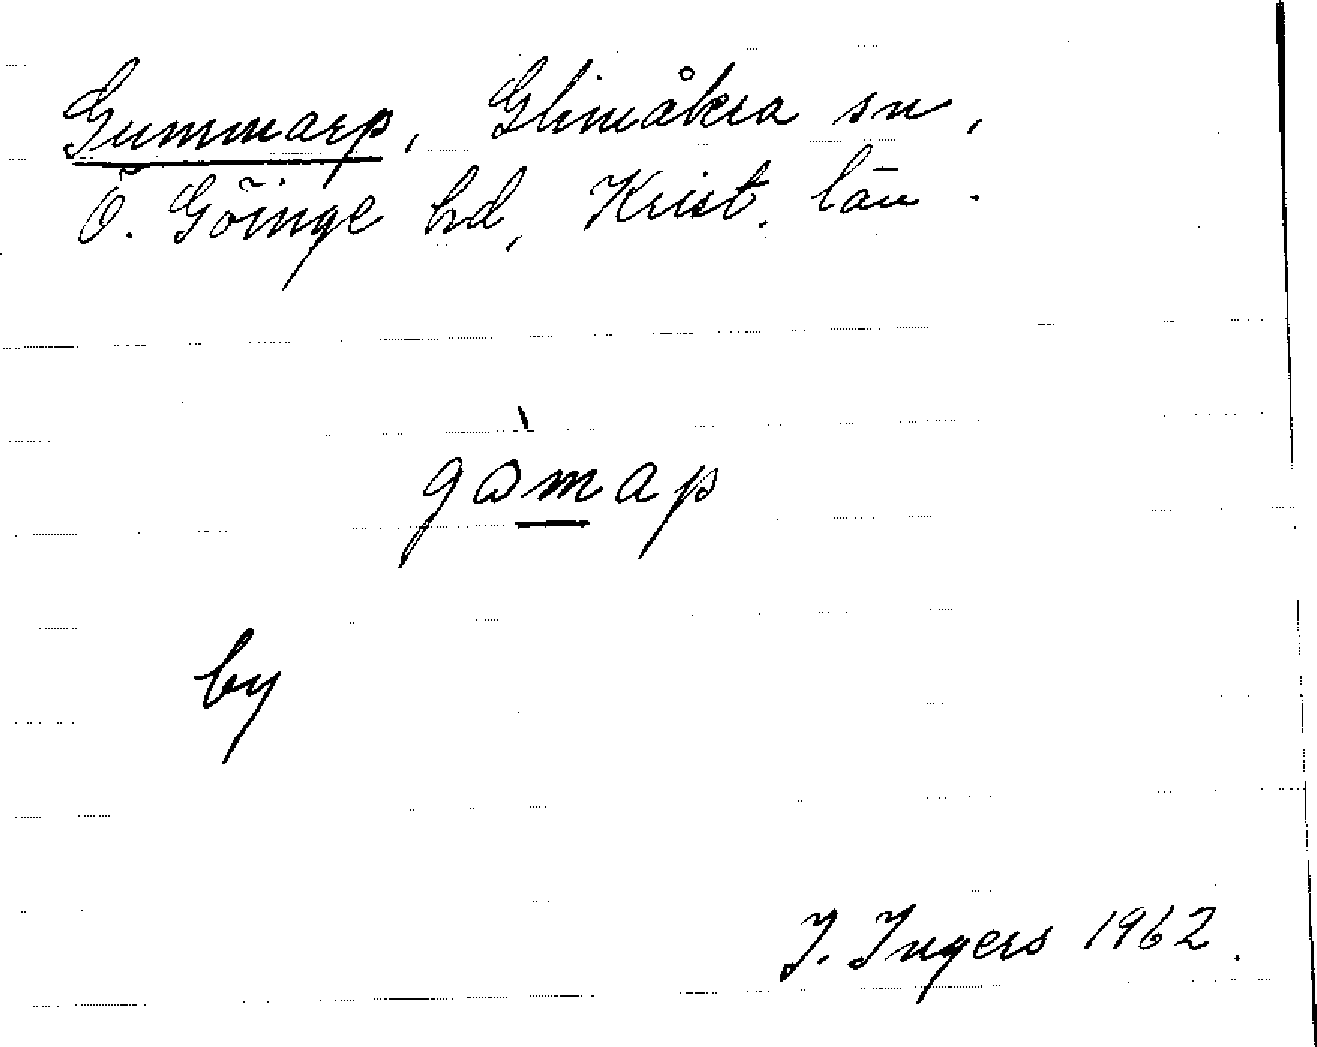 Gummarp, Glimåkra sn,
Ö. Göinge hd, Krist. län.
gɷ̀m̲ap
by
I. Ingers 1962.